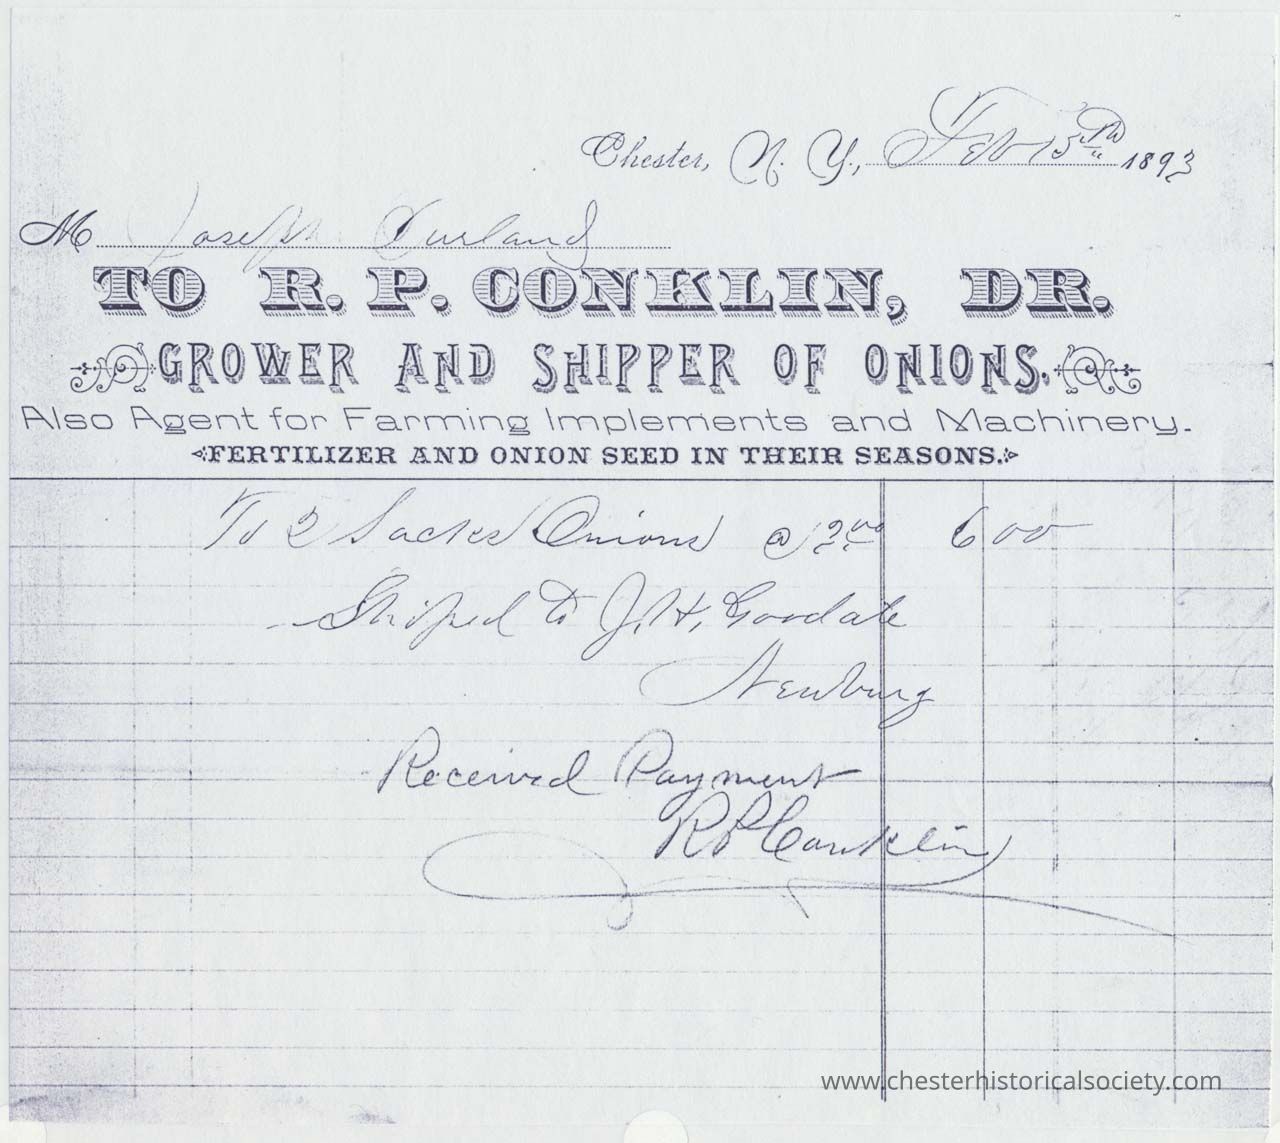 Chester, N. Y., Feb 15th 1893
M Joseph Durland
TO R. P. CONKLIN, DR.
GROWER AND SHIPPER OF ONIONS.
Also Agent for Farming Implements and Machinery.
FERTILIZER AND ONION SEED IN THEIR SEASONS.
To 2 Sacks Onions @ 3.00 6 00
Shiped to J. H. Goodale
Newburg
Received Payment
R P Conklin
www.chesterhistoricalsociety.com